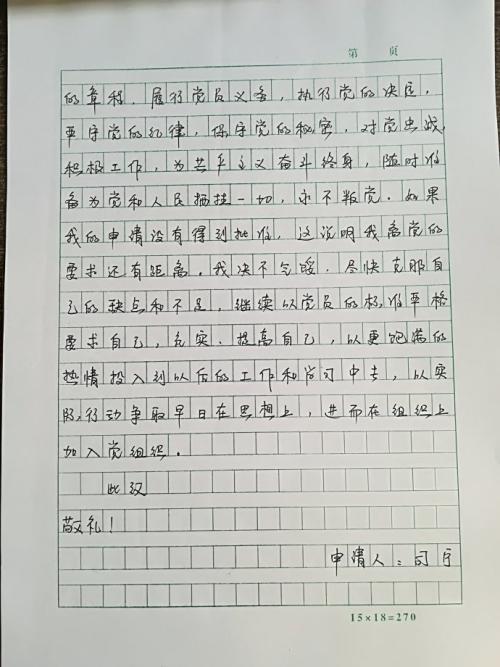 第 页
的章程，履行党员义务，执行党的决定，
严守党的纪律，保守党的秘密，对党忠诚，
积极工作，为共产主义奋斗终身，随时准
备为党和人民牺牲一切，永不叛党。如果
我的申请没有得到批准，这说明我离党的
要求还有距离。我决不气馁，尽快克服自
己的缺点和不足，继续以党员的标准严格
要求自己，充实、提高自己，以更饱满的
热情投入到以后的工作和学习中去，以实
际行动争取早日在思想上，进而在组织上
加入党组织。
此致
敬礼！
申请人：司
15×18=270